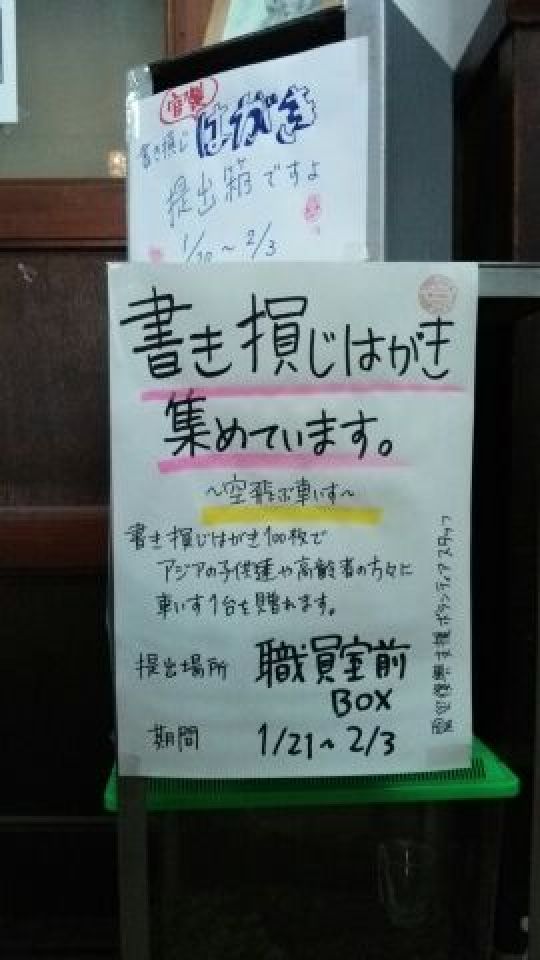 官製
書き損じはがき
提出箱ですよ
1/20~2/3
書き損じはがき
集めています。
~空飛ぶ車いす~
書き損じはがき100枚で
アジアの子供達や高齢者の方々に
車いす1台を贈れます。
提出場所 職員室前
BOX
期間 1/21~2/3
ボランティアスタッフ